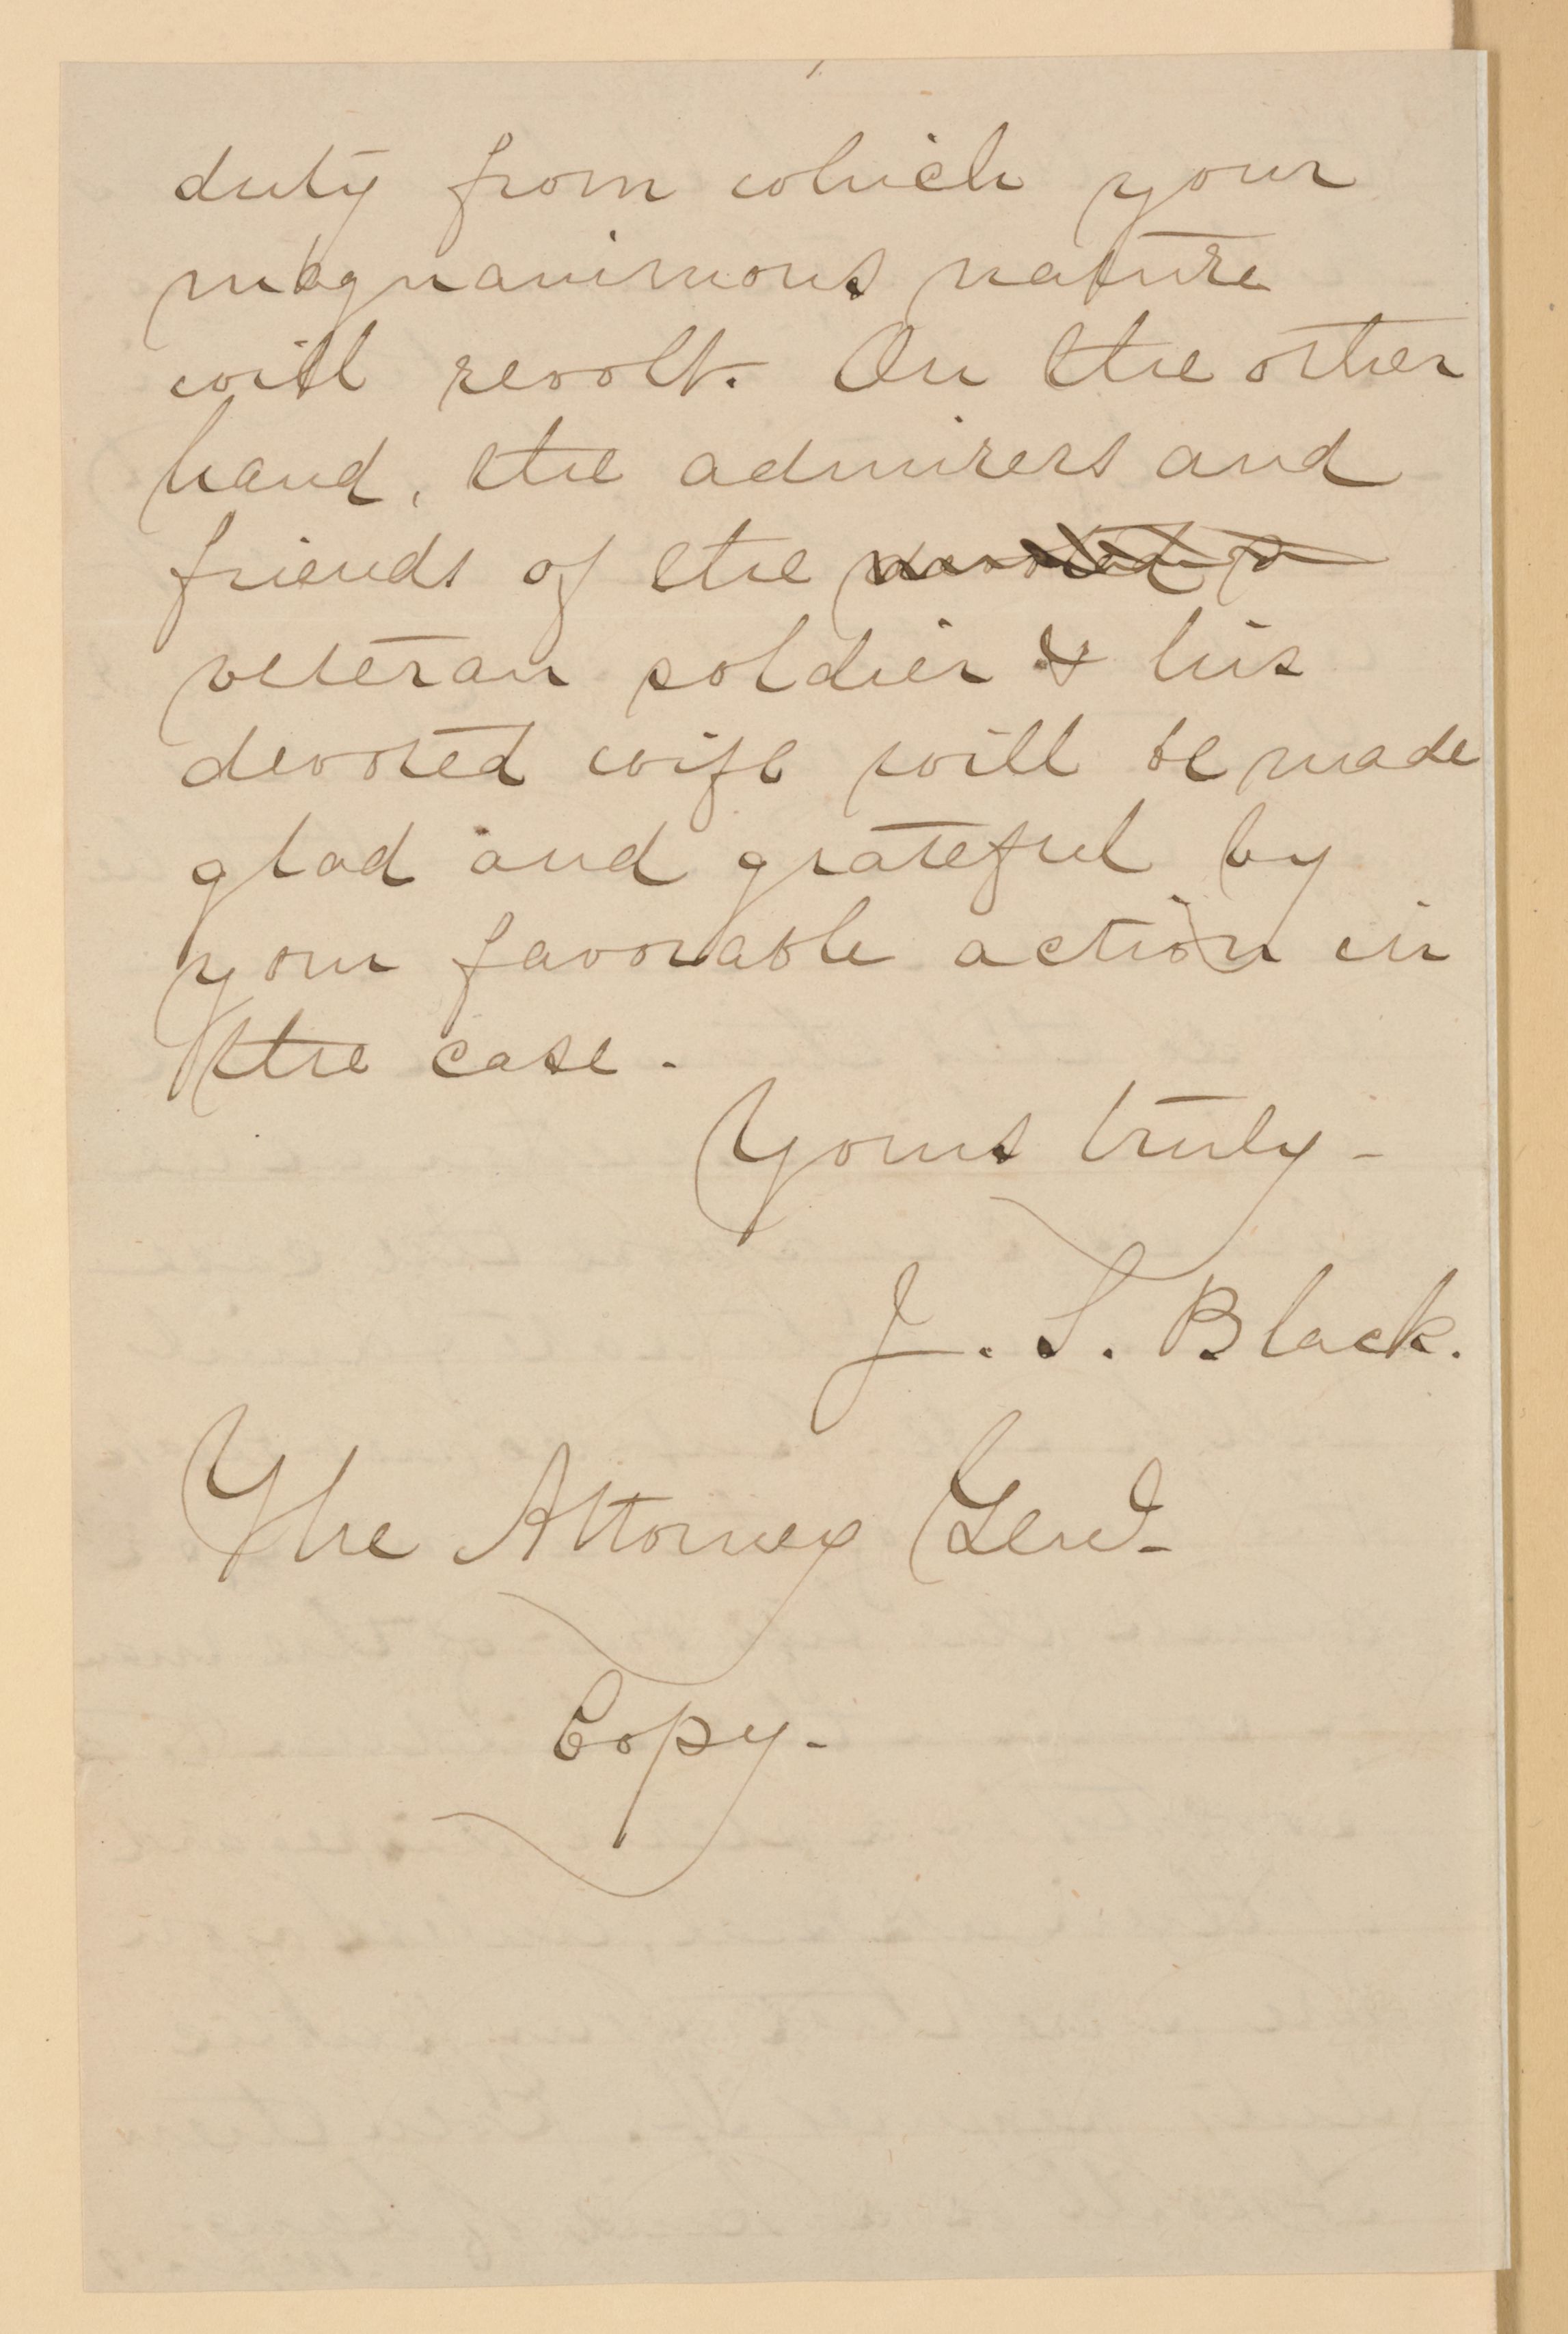 duty from which your
magnanimous nature
will revolt. On the other
hand, the admirers and
friends of the
veteran soldier & his
devoted wife will be made
glad and grateful by
your favorable action in
the case.
Yours truly -
J. S. Black.
The Attorney Genl -
Copy -